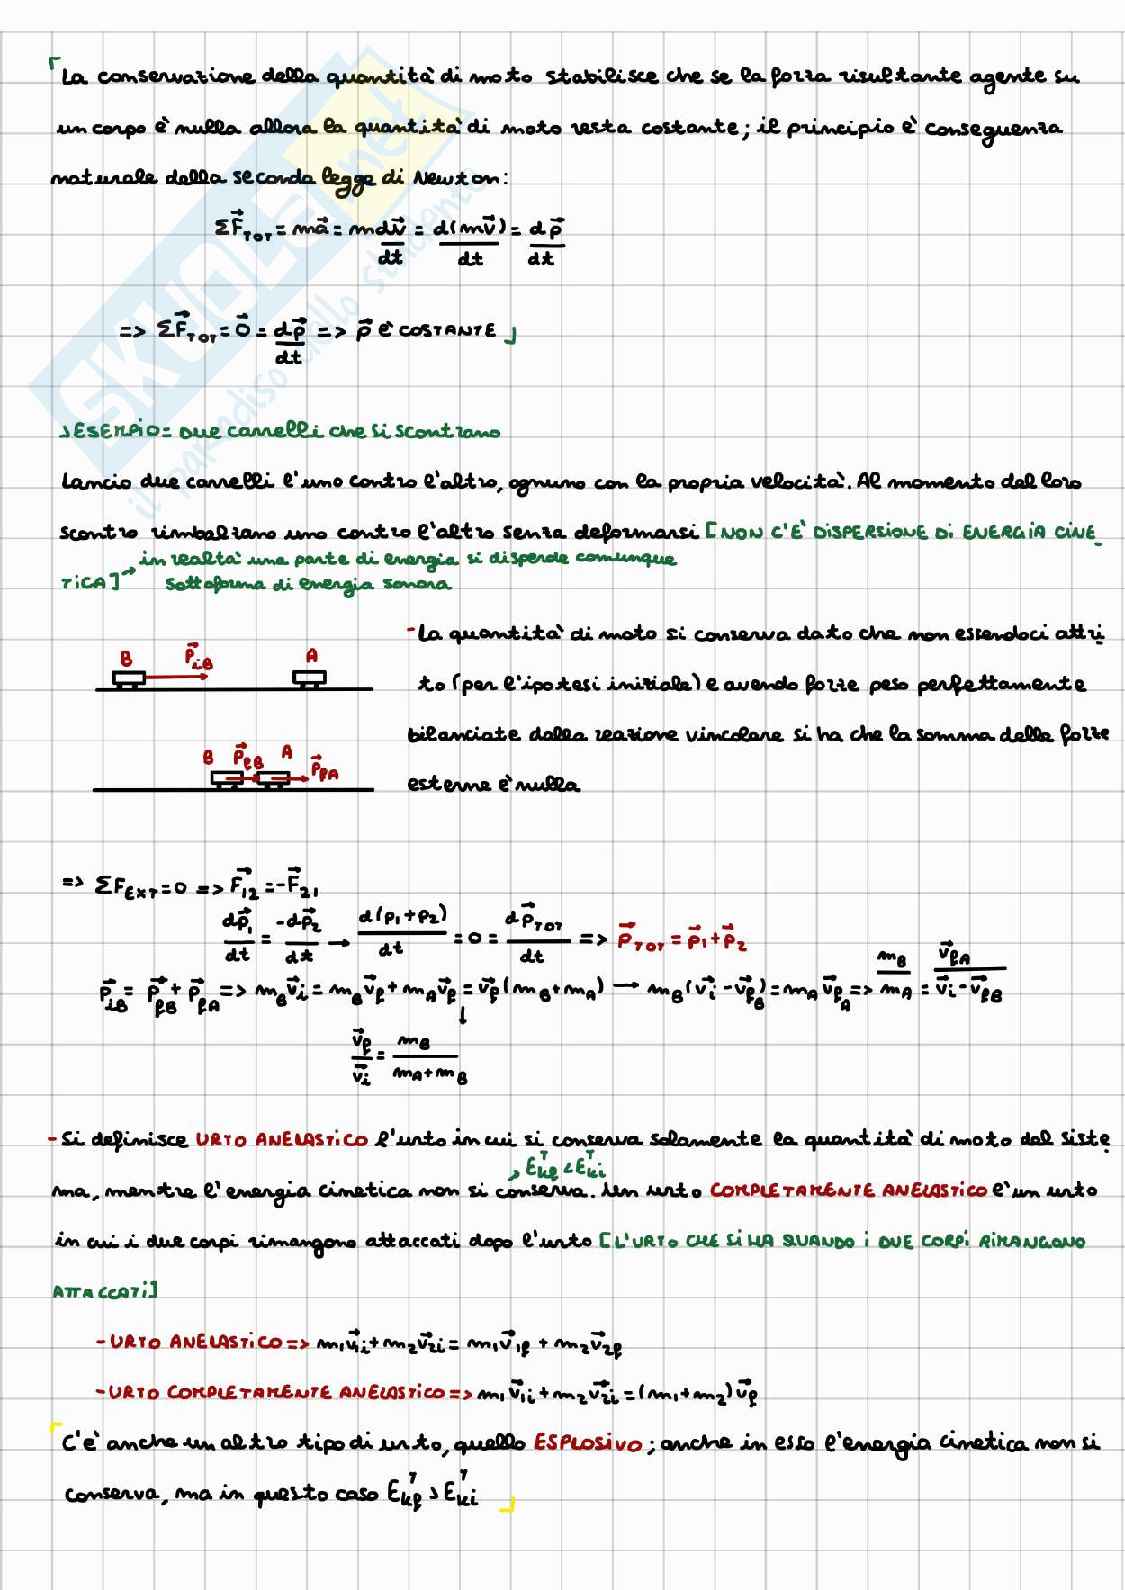 La conservazione della quantità di moto stabilisce che se la forza risultante agente su
un corpo è nulla allora la quantità di moto resta costante; il principio è conseguenza
naturale della seconda legge di Newton:
ΣF⃗_TOT = ma⃗ = m dv⃗/dt = d(mv⃗)/dt = dp⃗/dt
=> ΣF⃗_TOT = 0⃗ = dp⃗/dt => p⃗ è COSTANTE
>ESEMPIO= Due carrelli che si scontrano
Lancio due carrelli l'uno contro l'altro, ognuno con la propria velocità. Al momento del loro
scontro rimbalzano uno contro l'altro senza deformarsi [NON C'È DISPERSIONE DI ENERGIA CINE_
TICA] → in realtà una parte di energia si disperde comunque
sottoforma di energia sonora
B p⃗_iB A
B p⃗_fB A p⃗_fA
-La quantità di moto si conserva dato che non essendoci attri
to (per l'ipotesi iniziale) e avendo forze peso perfettamente
bilanciate dalla reazione vincolare si ha che la somma delle forze
esterne è nulla
=> ΣF_EXT = 0 => F⃗_12 = -F⃗_21
dp⃗_1/dt = -dp⃗_2/dt → d(p_1+p_2)/dt = 0 = dp⃗_TOT/dt => p⃗_TOT = p⃗_1 + p⃗_2
p⃗_iB = p⃗_fB + p⃗_fA => m_B v⃗_i = m_B v⃗_f + m_A v⃗_f = v⃗_f (m_B + m_A) → m_B (v⃗_i - v⃗_fB) = m_A v⃗_fA => m_B/m_A = v⃗_fA/(v⃗_i - v⃗_fB)
↓
v⃗_f/v⃗_i = m_B/(m_A + m_B)
- Si definisce URTO ANELASTICO l'urto in cui si conserva solamente la quantità di moto del siste
> E^T_kf < E^T_ki
ma, mentre l'energia cinetica non si conserva. Un urto COMPLETAMENTE ANELASTICO è un urto
in cui i due corpi rimangono attaccati dopo l'urto [L'URTO CHE SI HA QUANDO I DUE CORPI RIMANGONO
ATTACCATI]
- URTO ANELASTICO => m_1 v⃗_1i + m_2 v⃗_2i = m_1 v⃗_1f + m_2 v⃗_2f
- URTO COMPLETAMENTE ANELASTICO => m_1 v⃗_1i + m_2 v⃗_2i = (m_1 + m_2) v⃗_f
C'è anche un altro tipo di urto, quello ESPLOSIVO; anche in esso l'energia cinetica non si
conserva, ma in questo caso E^T_kf > E^T_ki
SKUOLA.net
il paradiso dello studente